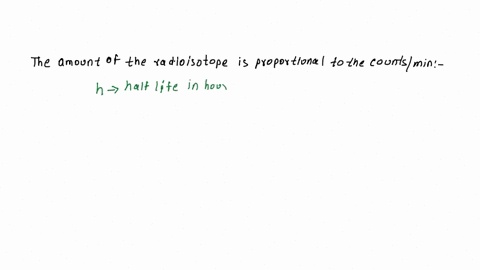 The amount of the radioisotope is proportional to the counts/min:-
h → half life in hour